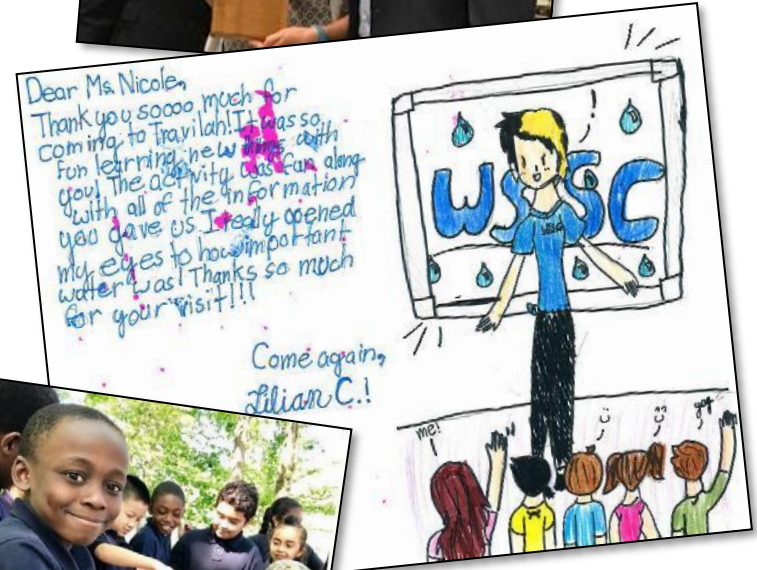 Dear Ms. Nicole,
Thank you soooo much for
coming to Travilah! It was so
fun learning new things with
you! The activity was fun along
with all of the information
you gave us. I really opened
my eyes to how important
water was! Thanks so much
for your visit!!!
Come again,
Lilian C.!
WSSC
me!
yay